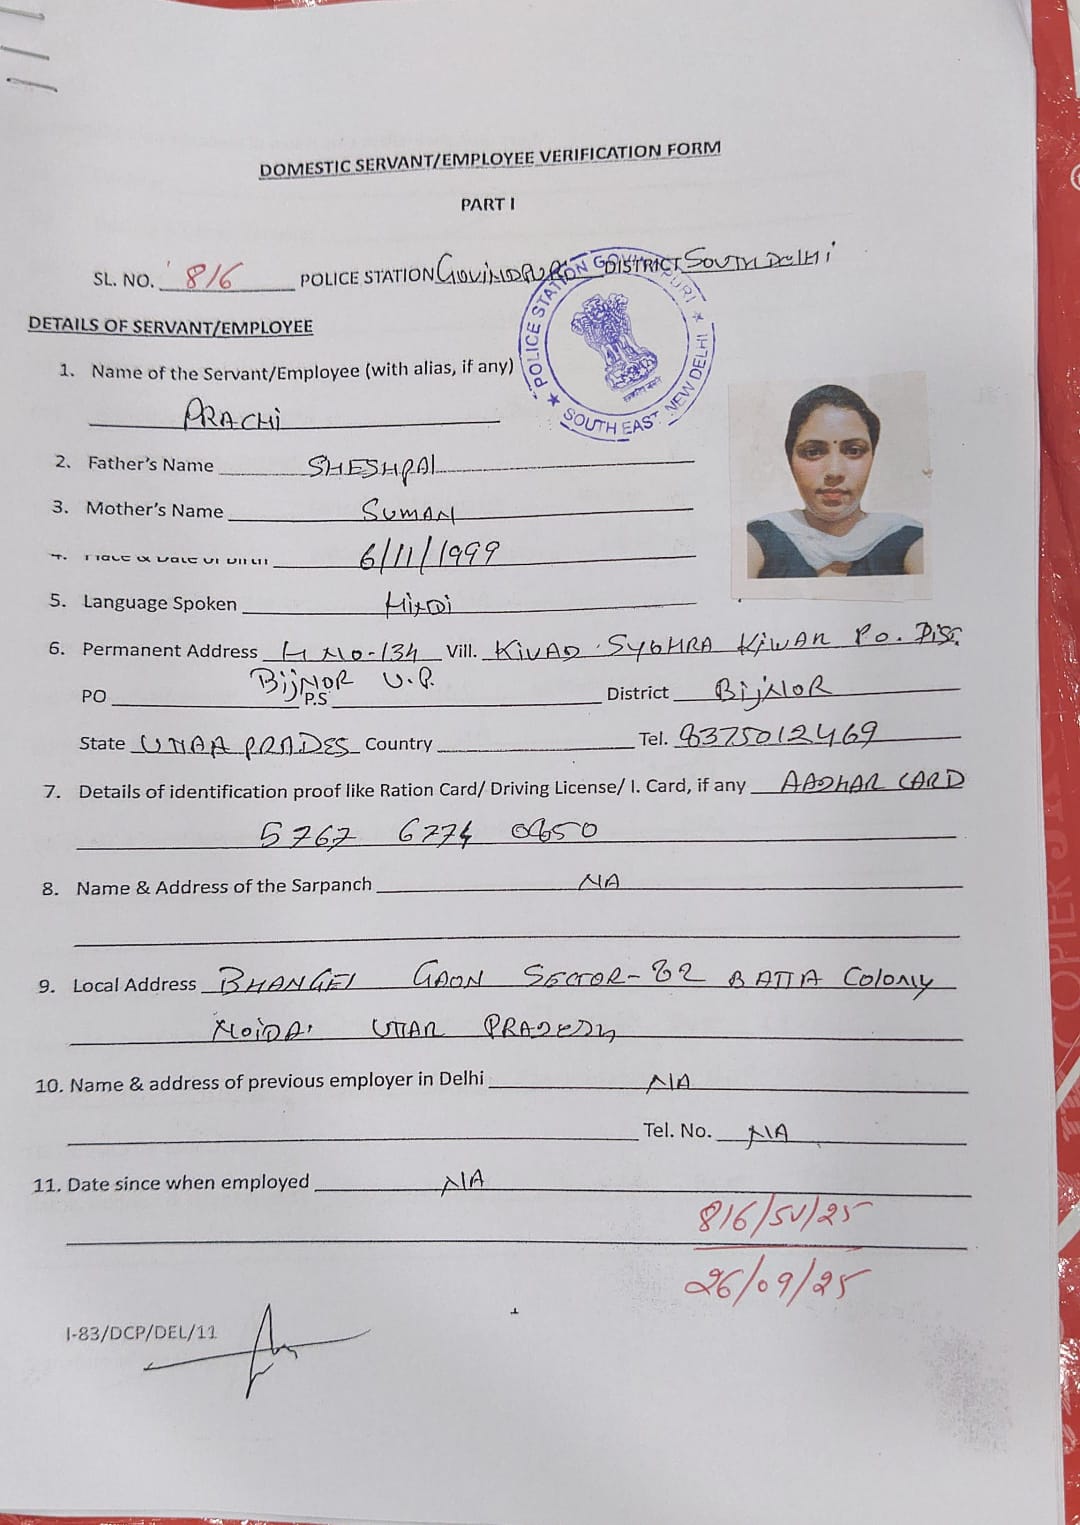 DOMESTIC SERVANT/EMPLOYEE VERIFICATION FORM
PART I
SL. NO. 816 POLICE STATION GOVINDPURI DISTRICT SOUTH DELHI
POLICE STATION GOVINDPURI ★ SOUTH EAST NEW DELHI ★
DETAILS OF SERVANT/EMPLOYEE
1. Name of the Servant/Employee (with alias, if any)
PRACHI
2. Father's Name SHESHPAL
3. Mother's Name SUMAN
4. Place & Date of Birth 6/11/1999
5. Language Spoken HINDI
6. Permanent Address H NO-134 Vill. KIVAD SYOHRA KIWAR PO. DISC.
BIJNOR U.P.
PO P.S District BIJNOR
State UTTAR PRADES Country Tel. 8375012469
7. Details of identification proof like Ration Card/ Driving License/ I. Card, if any AADHAR CARD
5767 6774 0650
8. Name & Address of the Sarpanch NA
9. Local Address BHANGEL GAON SECTOR-82 BATTA COLONY
NOIDA. UTTAR PRADESH
10. Name & address of previous employer in Delhi NA
Tel. No. NA
11. Date since when employed NA
816/SV/25
26/09/25
I-83/DCP/DEL/11